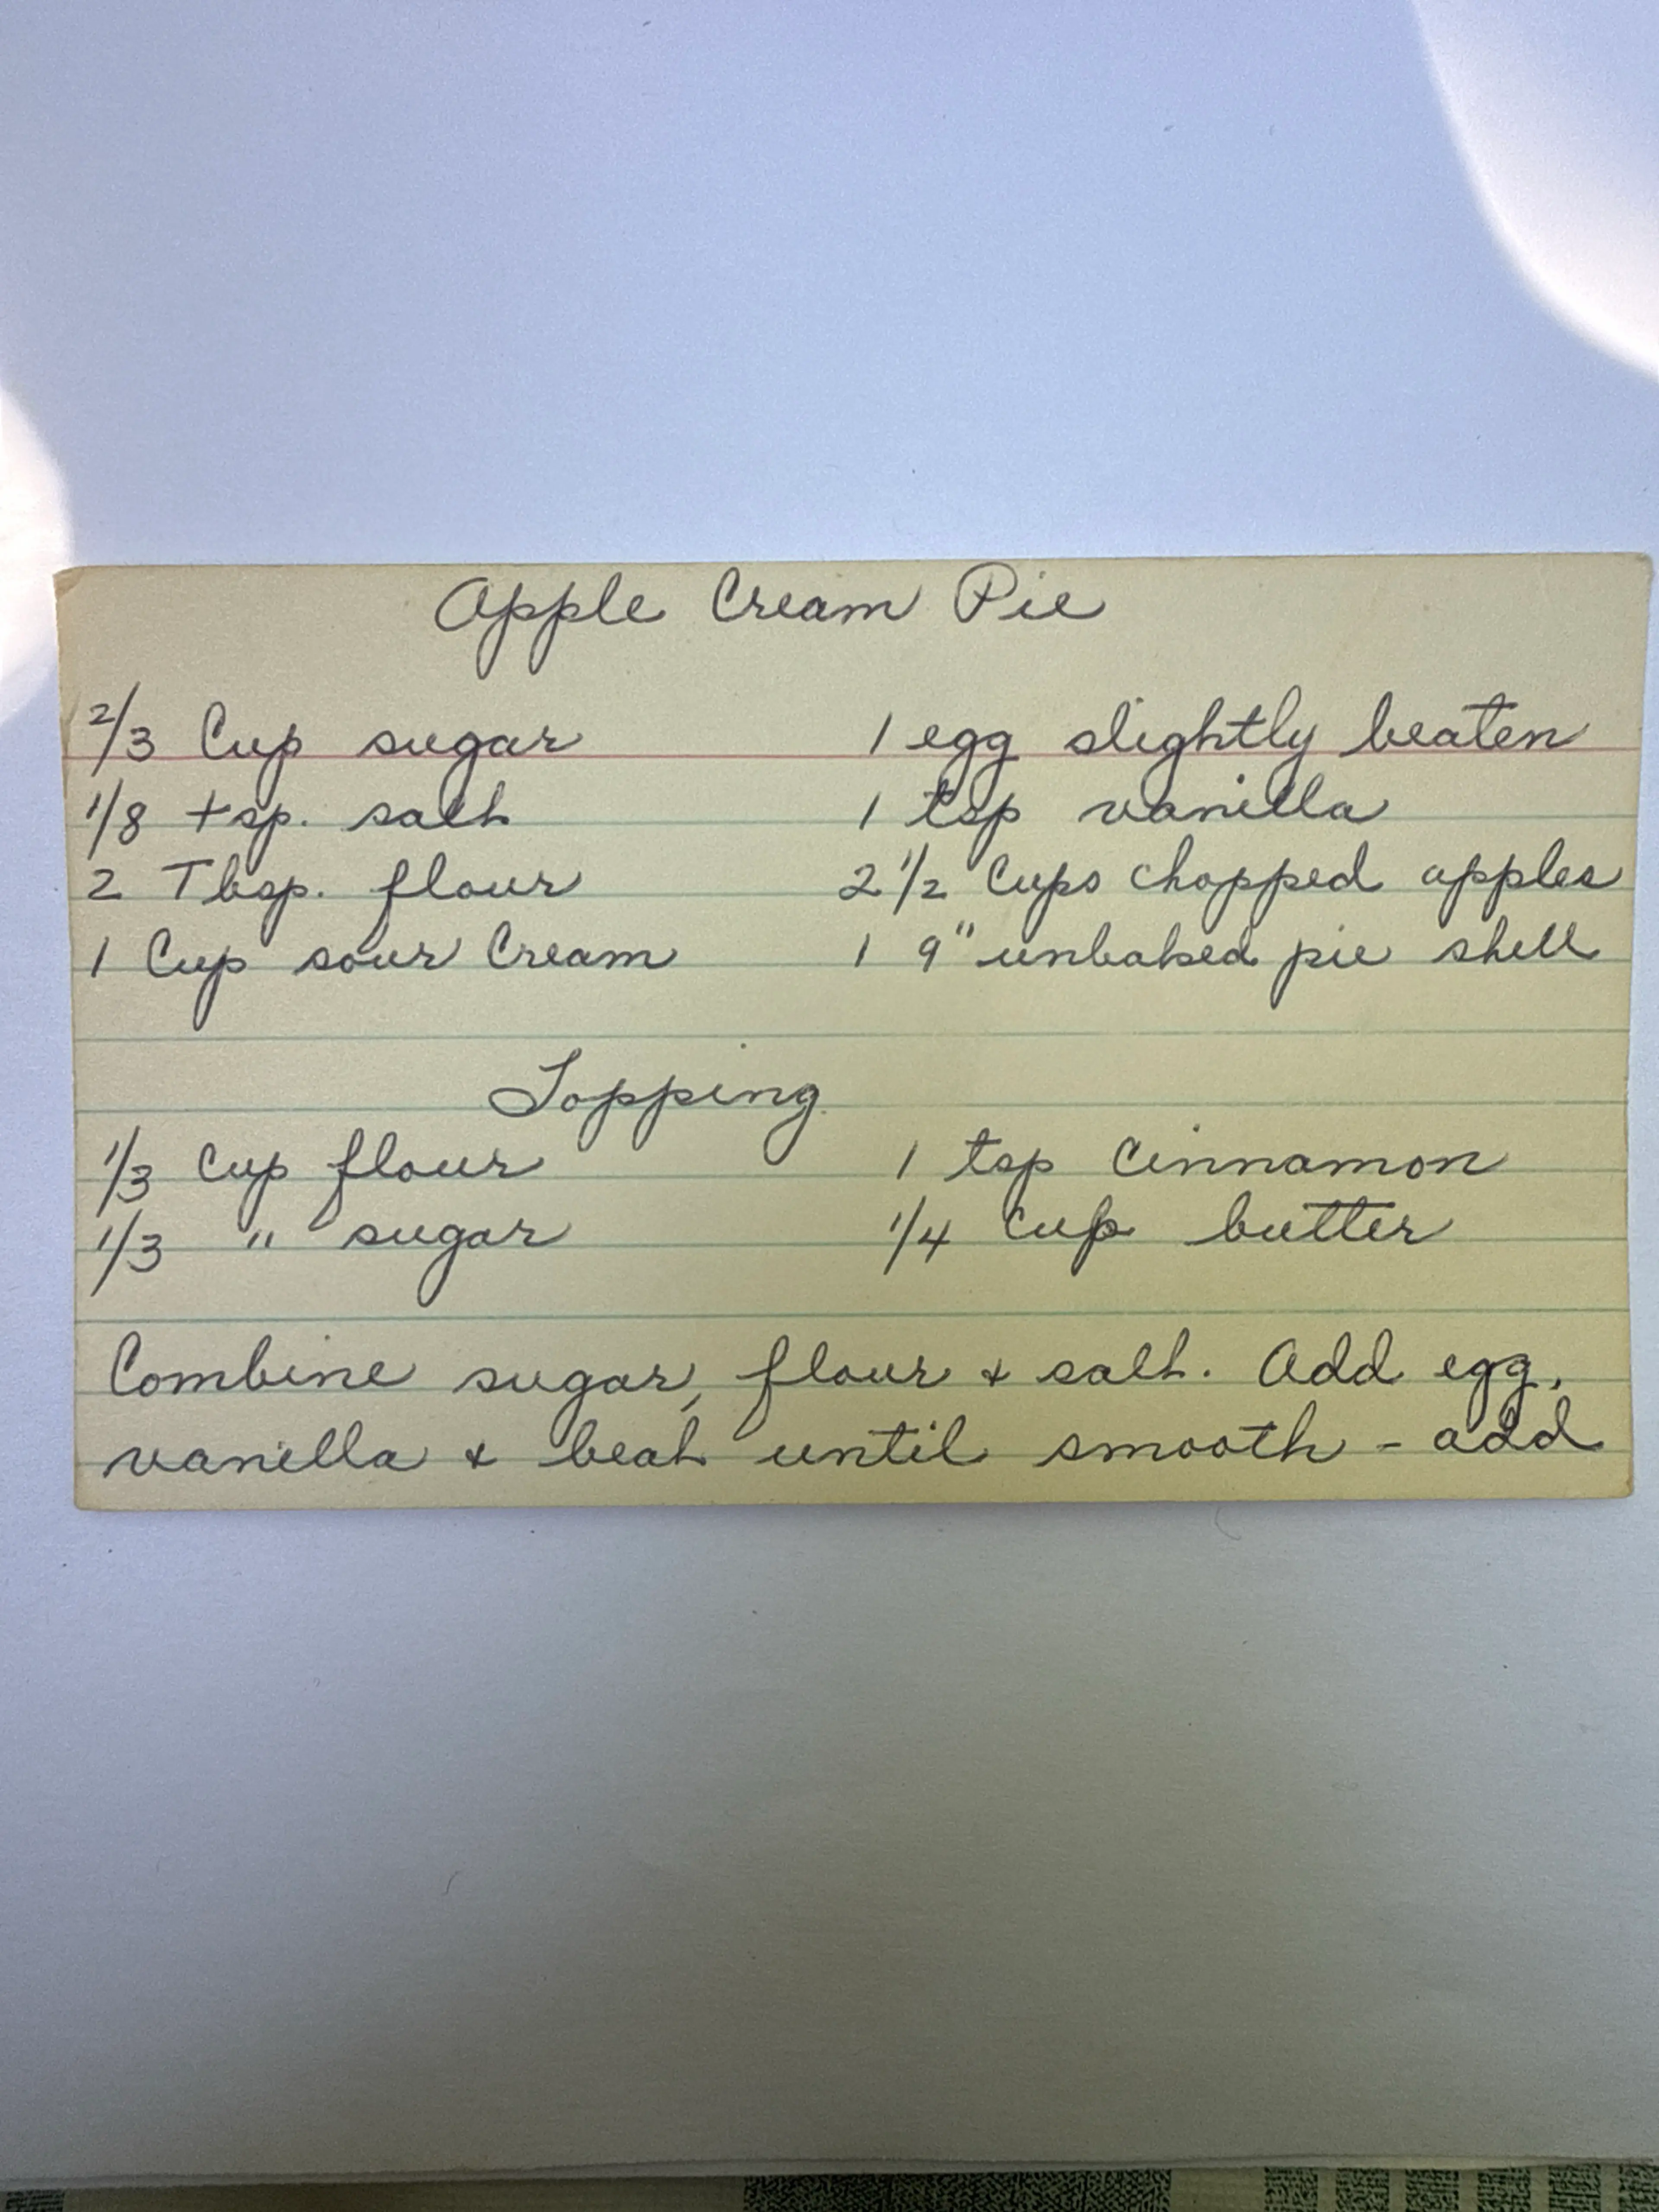 Apple Cream Pie
2/3 Cup sugar 1 egg slightly beaten
1/8 tsp. salt 1 tsp vanilla
2 Tbsp. flour 2 1/2 Cups chopped apples
1 Cup sour Cream 1 9" unbaked pie shell
Topping
1/3 Cup flour 1 tsp Cinnamon
1/3 " sugar 1/4 Cup butter
Combine sugar, flour & salt. Add egg,
vanilla & beat until smooth - add